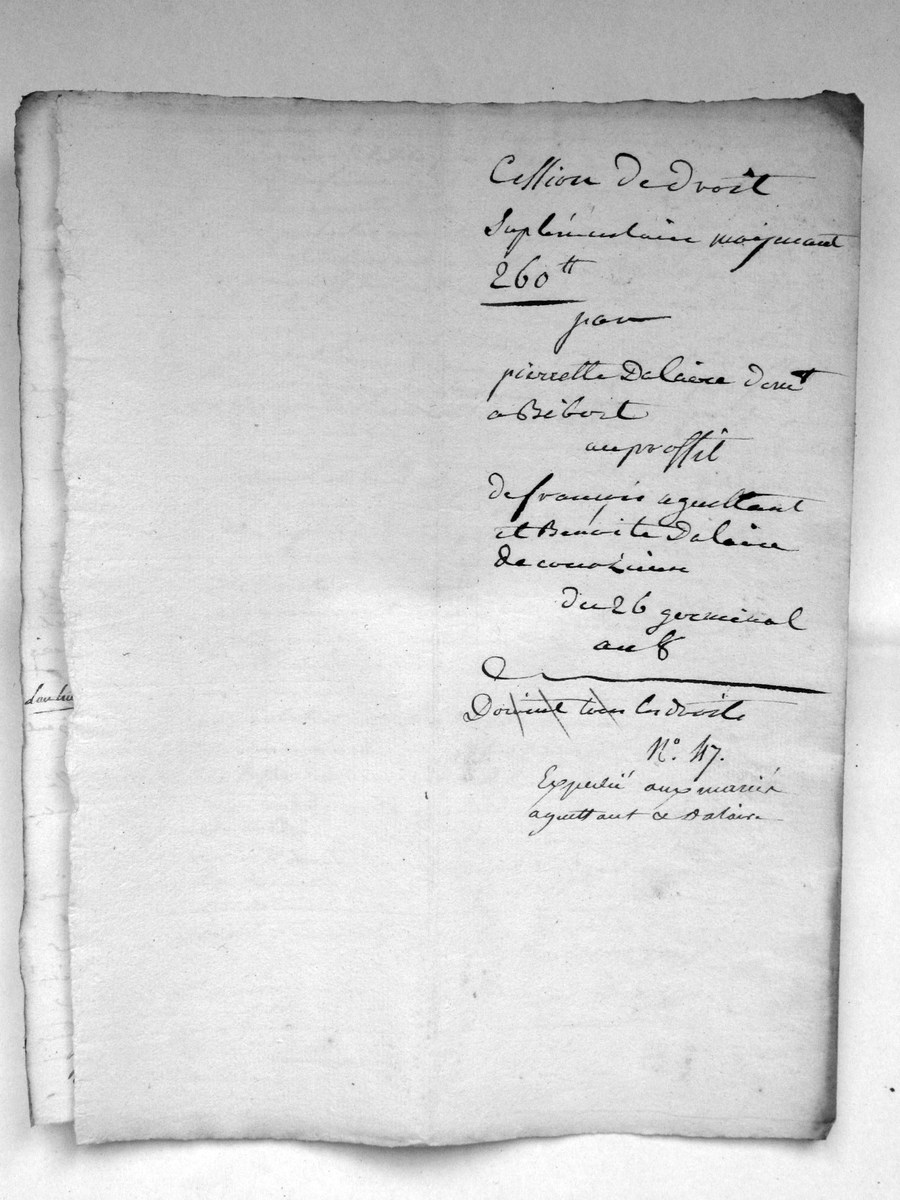 Cession de droit
suplémentaire moiennant
260tt
par
pierrette Dalaire demt
a Bibost
au proffit
de françois aguettant
et Benoite Dalaire
de courzieux
du 26 germinal
an 8
Doivent tous les droits
No. 47.
Expedié aux mariés
aguettant & Dalaire